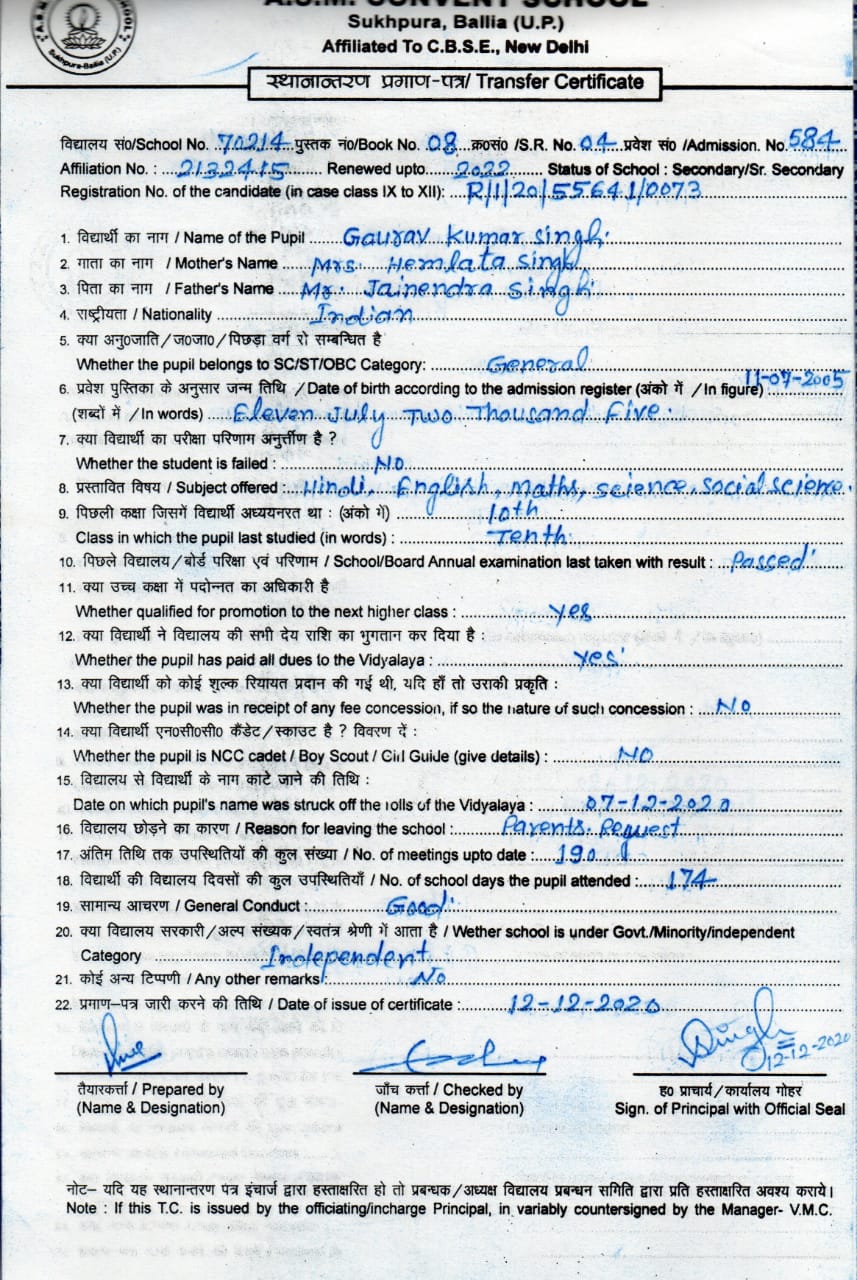 A.S.M. CONVENT SCHOOL
Sukhpura, Ballia (U.P.)
Affiliated To C.B.S.E., New Delhi
Sukhpura-Ballia (U.P.)
स्थानान्तरण प्रगाण-पत्र/ Transfer Certificate
विद्यालय सं0/School No. 70214 पुस्तक नं0/Book No. 08 क्र0सं0 /S.R. No. 04 प्रवेश सं0 /Admission. No. 584
Affiliation No. : 2132415 Renewed upto 2022 Status of School : Secondary/Sr. Secondary
Registration No. of the candidate (in case class IX to XII): R/1/20/55641/0073
1. विद्यार्थी का नाग / Name of the Pupil Gaurav Kumar Singh
2. गाता का नाग / Mother's Name Mrs. Hemlata Singh
3. पिता का नाग / Father's Name Mr. Jainendra Singh
4. राष्ट्रीयता / Nationality Indian
5. क्या अनु0जाति/ज0जा0/पिछड़ा वर्ग रो सम्बन्धित है
Whether the pupil belongs to SC/ST/OBC Category: General
6. प्रवेश पुस्तिका के अनुसार जन्म तिथि /Date of birth according to the admission register (अंको गें /In figure) 11-07-2005
(शब्दों में /In words) Eleven July Two Thousand Five.
7. क्या विद्यार्थी का परीक्षा परिणाम अनुर्त्तीण है ?
Whether the student is failed : No
8. प्रस्तावित विषय / Subject offered : Hindi, English, Maths, Science, Social Science.
9. पिछली कक्षा जिसगें विद्यार्थी अध्ययनरत था : (अंको गें) 10th
Class in which the pupil last studied (in words) : Tenth
10. पिछले विद्यालय/बोर्ड परिक्षा एवं परिणाम / School/Board Annual examination last taken with result : Passed
11. क्या उच्च कक्षा गें पदोन्नत का अधिकारी है
Whether qualified for promotion to the next higher class : Yes
12. क्या विद्यार्थी ने विद्यालय की सभी देय राशि का भुगतान कर दिया है :
Whether the pupil has paid all dues to the Vidyalaya : Yes
13. क्या विद्यार्थी को कोई शुल्क रियायत प्रदान की गई थी, यदि हाँ तो उराकी प्रकृति :
Whether the pupil was in receipt of any fee concession, if so the nature of such concession : No
14. क्या विद्यार्थी एन0सी0सी0 कैंडेट/स्काउट है ? विवरण दें :
Whether the pupil is NCC cadet / Boy Scout / Girl Guide (give details) : No
15. विद्यालय से विद्यार्थी के नाग काटे जाने की तिथि :
Date on which pupil's name was struck off the rolls of the Vidyalaya : 07-12-2020
16. विद्यालय छोड़ने का कारण / Reason for leaving the school : Parents. Request
17. अंतिम तिथि तक उपस्थितियों की कुल संख्या / No. of meetings upto date : 190
18. विद्यार्थी की विद्यालय दिवसों की कुल उपस्थितियाँ / No. of school days the pupil attended : 174
19. सामान्य आचरण / General Conduct : Good
20. क्या विद्यालय सरकारी/अल्प संख्यक/स्वतंत्र श्रेणी गें आता है / Wether school is under Govt./Minority/independent
Category Independent
21. कोई अन्य टिप्पणी / Any other remarks : No
22. प्रगाण-पत्र जारी करने की तिथि / Date of issue of certificate : 12-12-2020
Singh 12-12-2020
तैयारकर्त्ता / Prepared by जाँच कर्त्ता / Checked by ह0 प्राचार्य/कार्यालय गोहर
(Name & Designation) (Name & Designation) Sign. of Principal with Official Seal
नोट– यदि यह स्थानान्तरण पत्र इंचार्ज द्वारा हस्ताक्षरित हो तो प्रबन्धक/अध्यक्ष विद्यालय प्रबन्धन समिति द्वारा प्रति हस्ताक्षरित अवश्य कराये।
Note : If this T.C. is issued by the officiating/incharge Principal, in variably countersigned by the Manager- V.M.C.